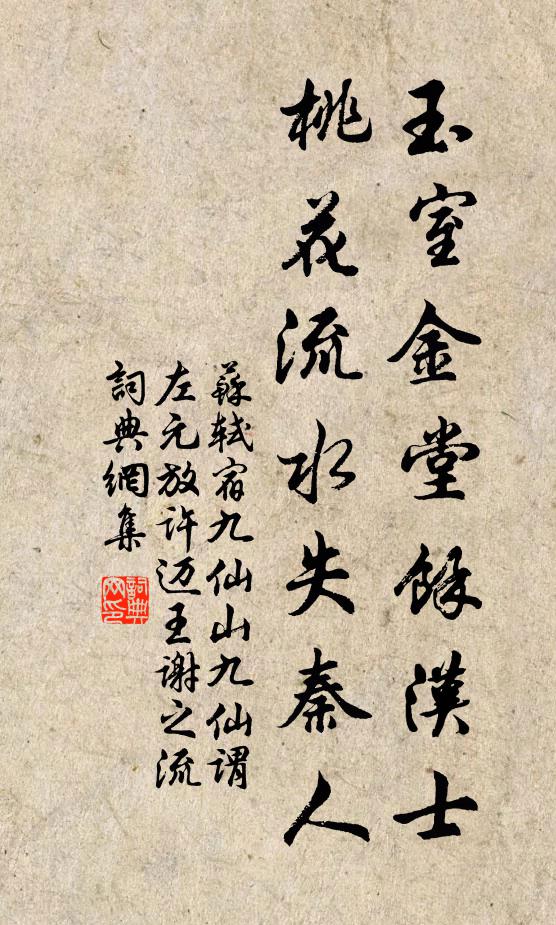 玉室金堂餘漢士
桃花流水失秦人
蘇軾宿九仙山九仙謂
左元放許迈王謝之流
詞典網集
詞典
网印